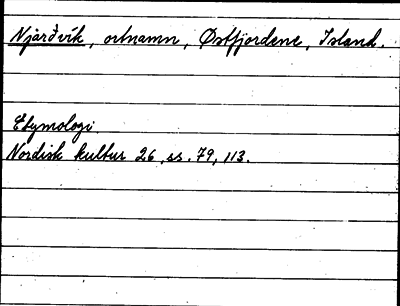 Njarðvík, ortnamn, Østfjordene, Island.
Etymologi
Nordisk kultur 26, ss. 79, 113.